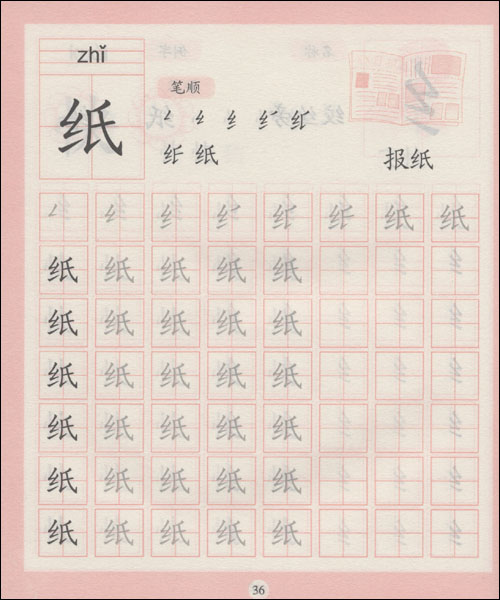 zhǐ
纸
笔顺
纟
纸
报纸
纟 纸 纸
纸 纸 纸 纸 纸
纸 纸 纸 纸 纸
纸 纸 纸 纸 纸
纸 纸 纸 纸 纸
纸 纸 纸 纸 纸
纸 纸 纸 纸 纸
36